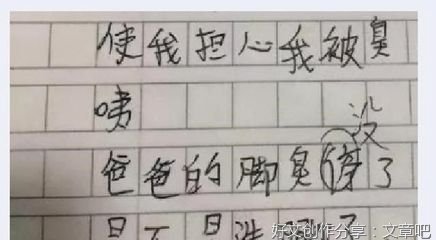 使我担心我被臭
咦
没
爸爸的脚臭了
是不是洗
好文创作分享：文章吧